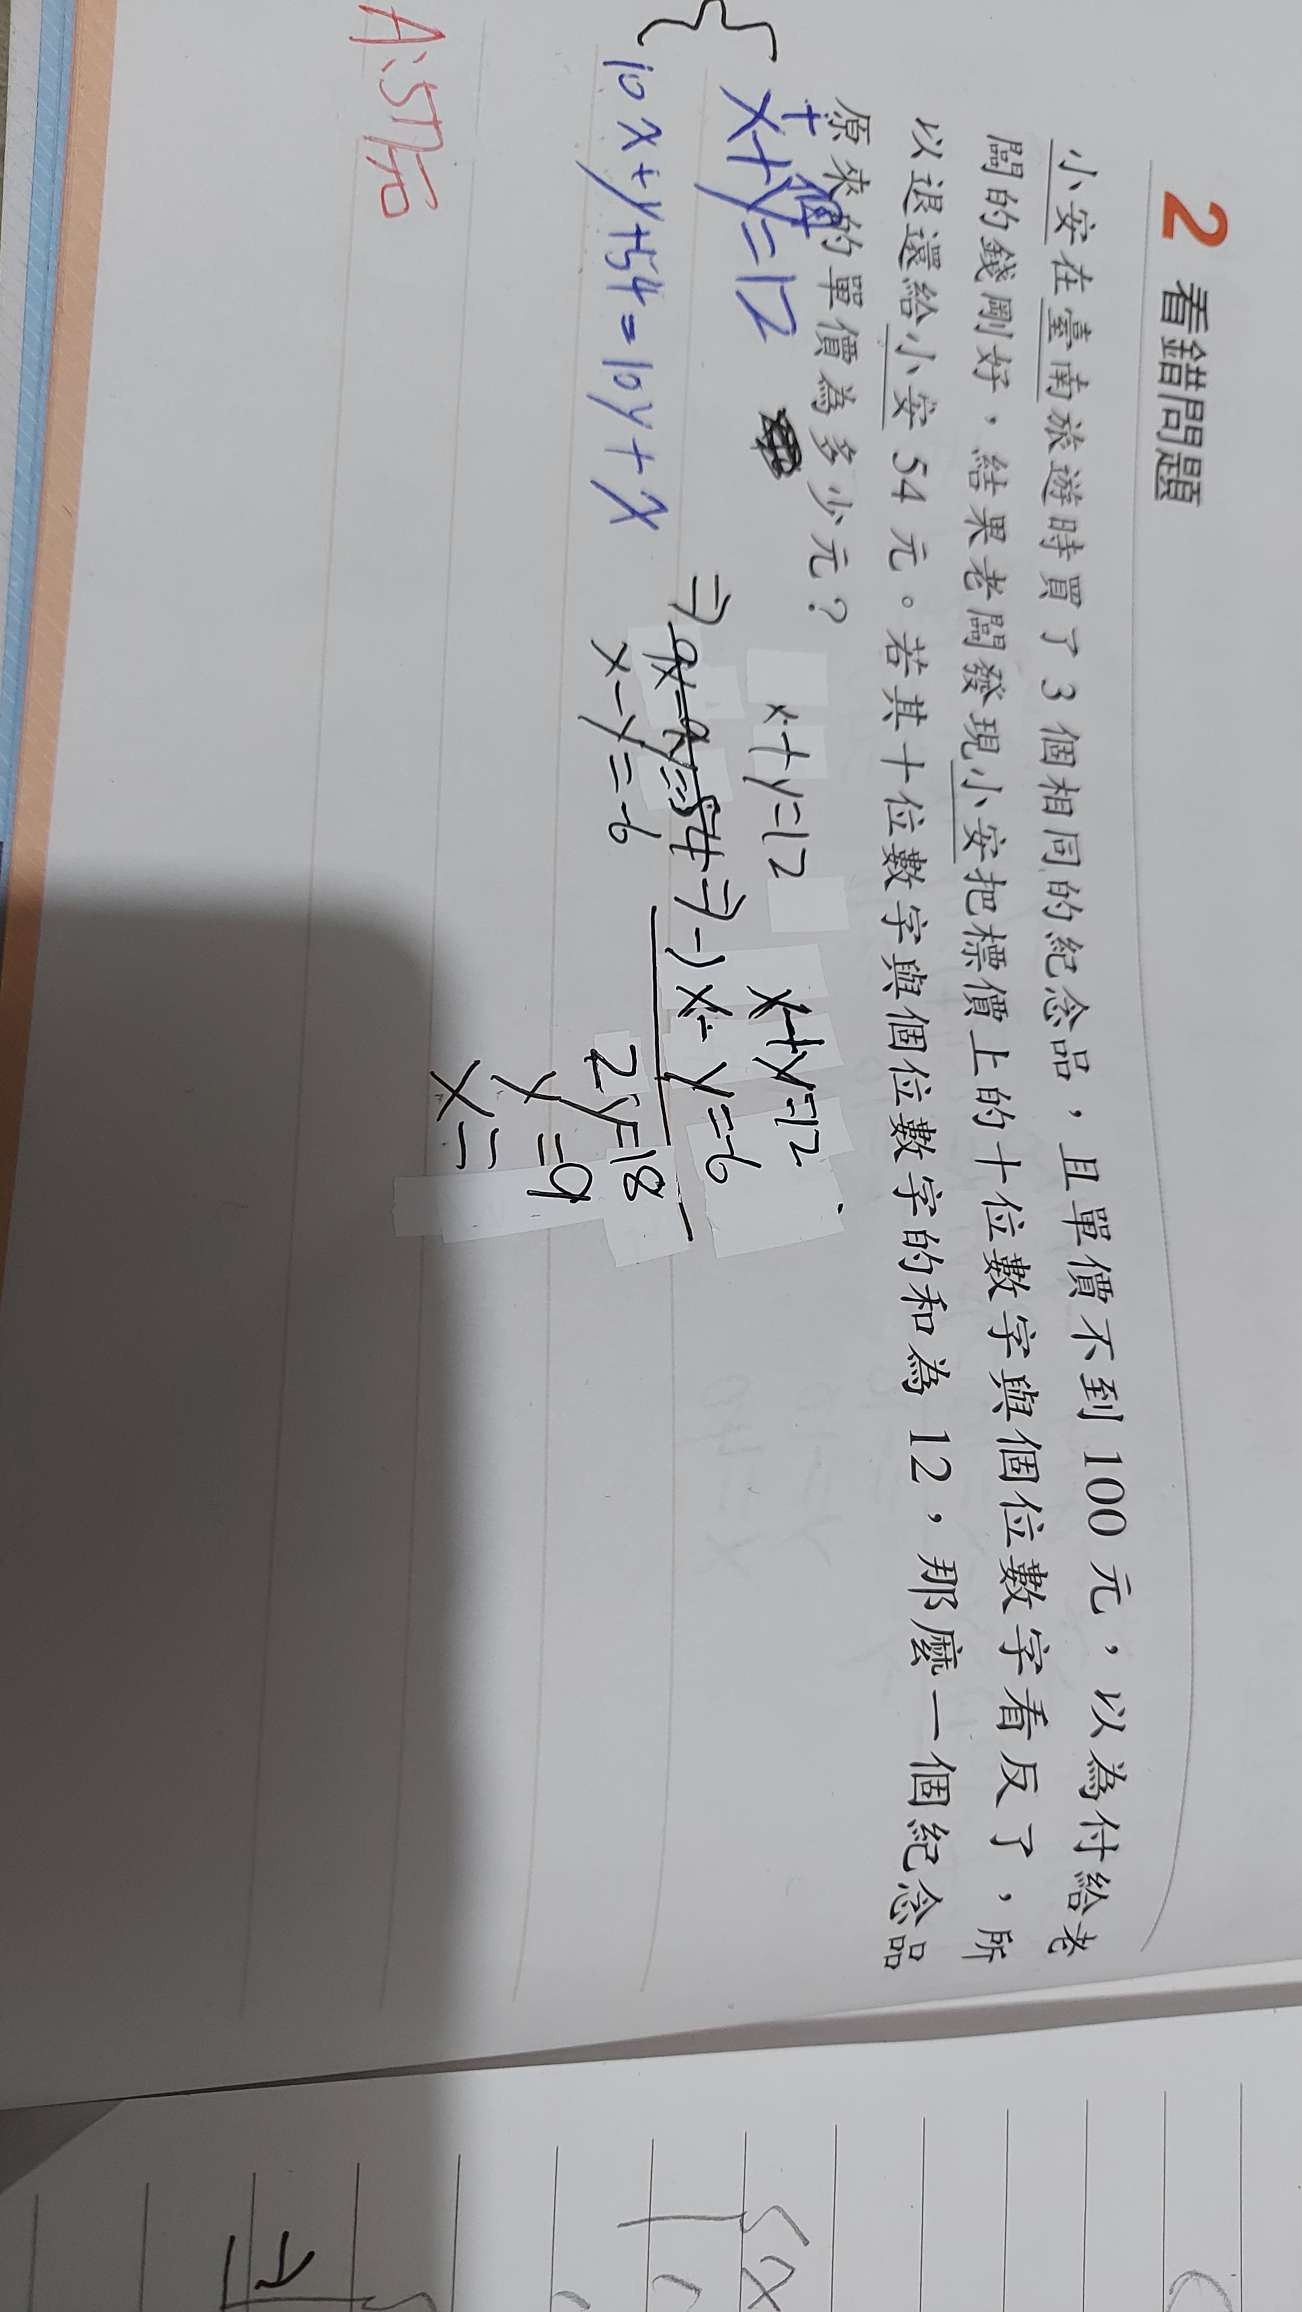 2 看錯問題
小安在臺南旅遊時買了3個相同的紀念品，且單價不到100元，以為付給老
闆的錢剛好，結果老闆發現小安把標價上的十位數字與個位數字看反了，所
以退還給小安54元。若其十位數字與個位數字的和為12，那麼一個紀念品
原來的單價為多少元？
十 個
x+y=12
10x+y+54=10y+x
x+y=12
⇒ 9x-9y=-54 ⇒
x-y=-6
x+y=12
-) x-y=-6
2y=18
y=9
x=
A:57元